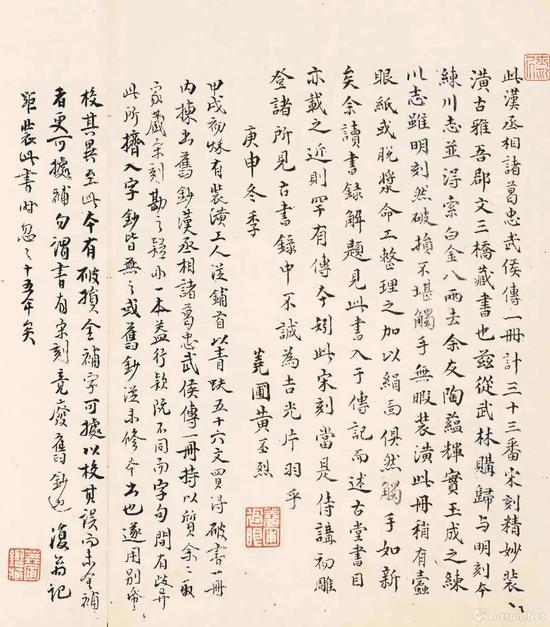 此漢丞相諸葛忠武侯傳一冊計三十三番宋刻精妙裝
潢古雅吾郡文三橋藏書也茲從武林購歸与明刻本
練川志並得索白金八兩去余友陶蘊輝實玉成之練
川志雖明刻然破損不堪觸手無暇裝潢此冊稍有蠹
眼紙或脫漿命工整理之加以絹面俱然觸手如新
矣余讀書錄解題見此書入于傳記而述古堂書目
亦載之近則罕有傳本矧此宋刻當是侍講初雕
登諸所見古書錄中不誠為吉光片羽乎
庚申冬季
蕘圃黃丕烈
甲戌初秋有裝潢工人從鋪首以青蚨五十六文買得破書一冊
内揀出舊鈔漢丞相諸葛忠武侯傳一冊持以質余余取
家藏宋刻勘之疑非一本蓋行款既不同而字句間有歧異
此所擠入字鈔皆無之或舊鈔從未修本出也遂用別帋
校其異至此本有破損全補字可據以校其誤而未全補
者更可據補勿謂書有宋刻竟廢舊鈔也 復翁記
距裝此書時忽忽十五年矣
Artron.Net